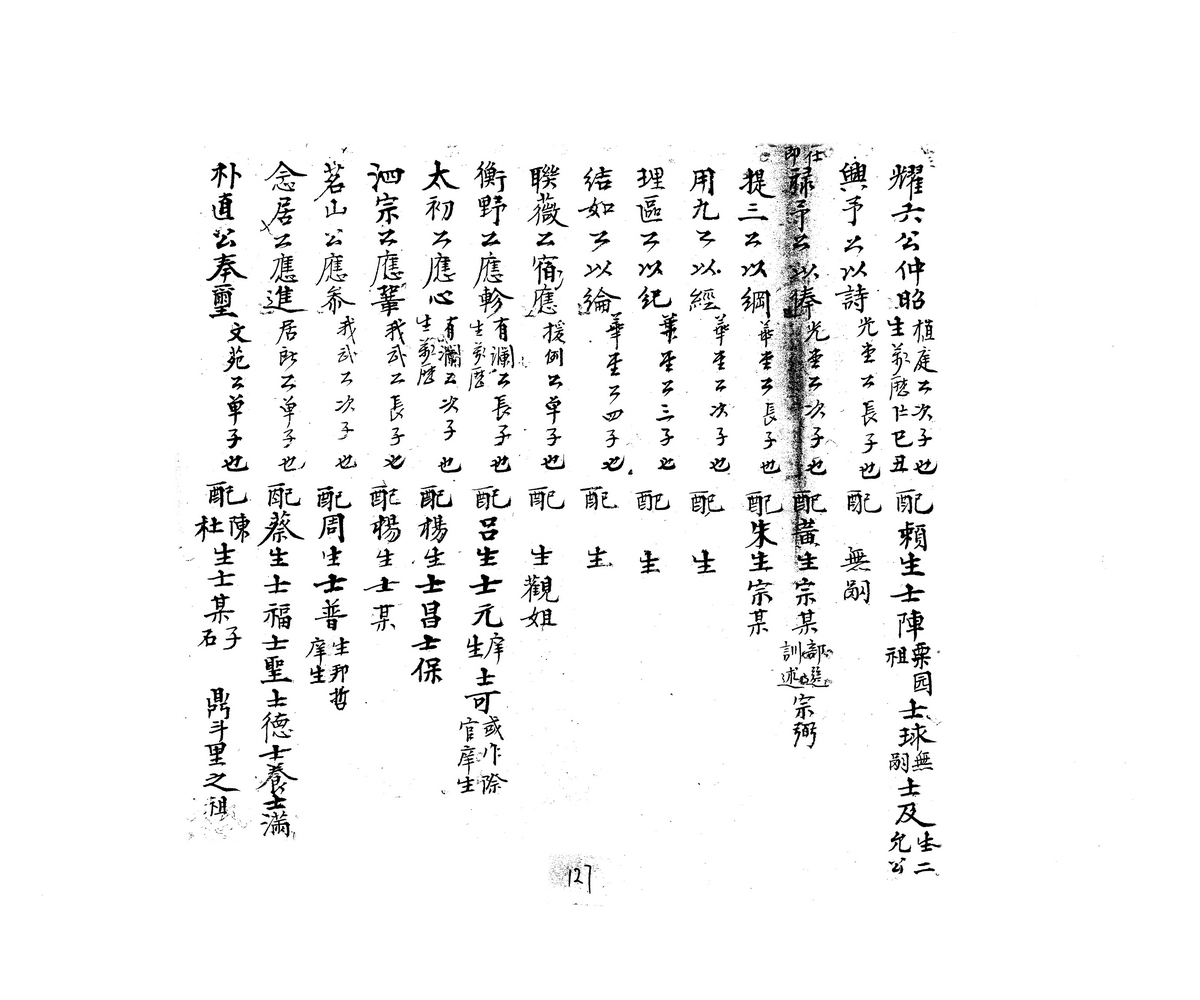 耀六公仲昭 植庭公次子也 生萬曆 己丑 配賴生士陣 栗园祖 士球 無嗣 士及 生二 允公
興予公以詩 光奎公長子也 配 無嗣
仕郎 禄予公以 光奎公次子也 配黃生宗某 訓述 宗弼
提三公以綱 華奎公長子也 配朱生宗某
用九公以經 華奎公次子也 配 生
理區公以紀 華奎公三子也 配 生
結如公以綸 華奎公四子也 配 生
聯薇公宿應 援例公单子也 配 生觀姐
衡野公應軫 有瀾公長子也 生萬曆 配呂生士元 庠生 士可 或作際 官庠生
太初公應心 有瀾公次子也 生萬曆 配楊生士昌士保
泗宗公應鞏 我武公長子也 配楊生士某
茗山公應泰 我武公次子也 配周生士普 生邦哲 庠生
念居公應進 居所公单子也 配蔡生士福士聖士德士養士滿
朴直公奉璽 文苑公单子也 配陳杜生士某 石子 鼎斗里之祖
127